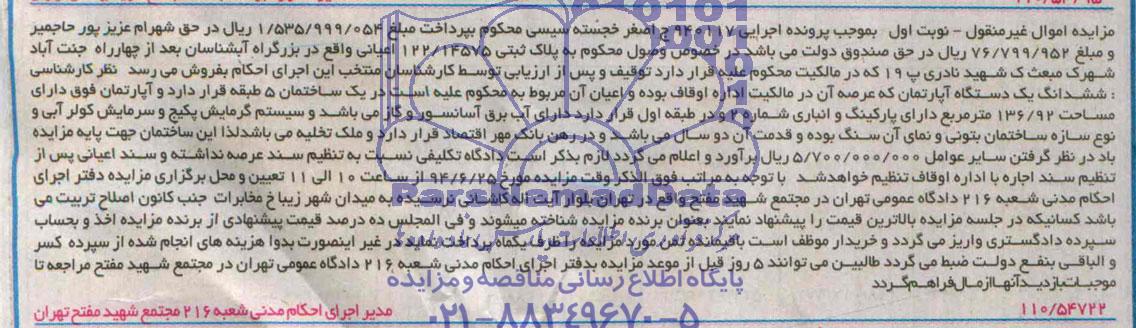 مزایده اموال غیرمنقول - نوبت اول بموجب پرونده اجرایی ۹۴۰۲۱۷ ج اصغر خجسته سیسی محکوم بپرداخت مبلغ ۱/۵۳۵/۹۹۹/۰۵۴ ریال در حق شهرام عزیز پور حاجمیر
و مبلغ ۷۶/۷۹۹/۹۵۲ ریال در حق صندوق دولت می باشد در خصوص وصول محکوم به پلاک ثبتی ۱۲۲/۱۴۵۷۵ اعیانی واقع در بزرگراه آبشناسان بعد از چهارراه جنت آباد
شهرک مبعث ک شهید نادری پ ۱۹ که در مالکیت محکوم علیه قرار دارد توقیف و پس از ارزیابی توسط کارشناسان منتخب این اجرای احکام بفروش می رسد نظر کارشناسی
: ششدانگ یک دستگاه آپارتمان که عرصه آن در مالکیت اداره اوقاف بوده و اعیان آن مربوط به محکوم علیه است در یک ساختمان ۵ طبقه قرار دارد و آپارتمان فوق دارای
مساحت ۱۳۶/۹۲ مترمربع دارای پارکینگ و انباری شماره ۲ و در طبقه اول قرار دارد دارای آب برق آسانسور و گاز می باشد و سیستم گرمایش پکیج و سرمایش کولر آبی و
نوع سازه ساختمان بتونی و نمای آن سنگ بوده و قدمت آن دو سال می باشد و در رهن بانک مهر اقتصاد قرار دارد و ملک تخلیه می باشدلذا این ساختمان جهت پایه مزایده
باد در نظر گرفتن سایر عوامل ۵/۷۰۰/۰۰۰/۰۰۰ ریال برآورد و اعلام می گردد لازم بذکر است دادگاه تکلیفی نسبت به تنظیم سند عرصه نداشته و سند اعیانی پس از
تنظیم سند اجاره با اداره اوقاف تنظیم خواهدشد با توجه به مراتب فوق الذکر وقت مزایده مورخ ۹۴/۶/۲۵ از ساعت ۱۰ الی ۱۱ تعیین و محل برگزاری مزایده دفتر اجرای
احکام مدنی شعبه ۲۱۶ دادگاه عمومی تهران در مجتمع شهید مفتح واقع در تهران بلوار آیت اله کاشانی نرسیده به میدان شهر زیبا خ مخابرات جنب کانون اصلاح تربیت می
باشد کسانیکه در جلسه مزایده بالاترین قیمت را پیشنهاد نمایند بعنوان برنده مزایده شناخته میشوند و فی المجلس ده درصد قیمت پیشنهادی از برنده مزایده اخذ و بحساب
سپرده دادگستری واریز می گردد و خریدار موظف است باقیمانده ثمن مورد مزایده را ظرف یکماه پرداخت نماید در غیر اینصورت بدوا هزینه های انجام شده از سپرده کسر
و الباقی بنفع دولت ضبط می گردد طالبین می توانند ۵ روز قبل از موعد مزایده بدفتر اجرای احکام مدنی شعبه ۲۱۶ دادگاه عمومی تهران در مجتمع شهید مفتح مراجعه تا
موجبات بازدید آنها از مال فراهم گردد
۱۱۰/۵۴۷۲۲ مدیر اجرای احکام مدنی شعبه ۲۱۶ مجتمع شهید مفتح تهران
ParsNamadData
پایگاه اطلاع رسانی مناقصه و مزایده
۰۲۱-۸۸۳۴۹۶۷۰-۵